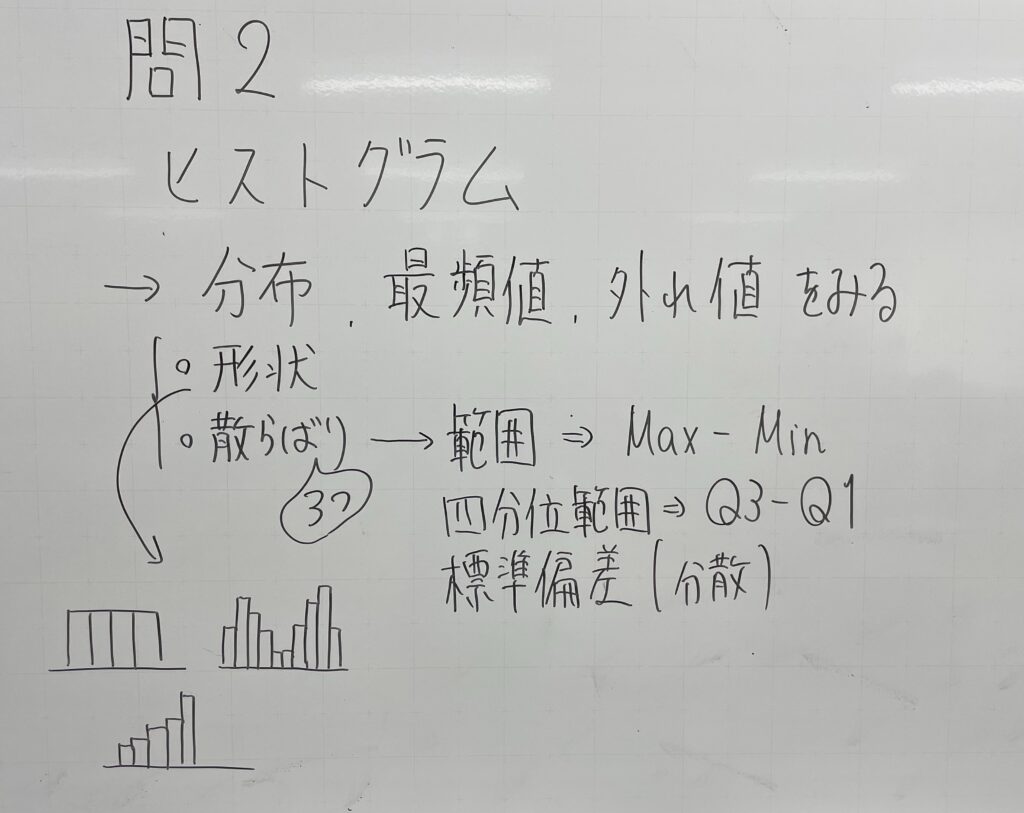 問2
ヒストグラム
→ 分布, 最頻値, 外れ値をみる
• 形状
• 散らばり → 範囲 ⇒ Max - Min
3つ
四分位範囲 ⇒ Q3-Q1
標準偏差(分散)